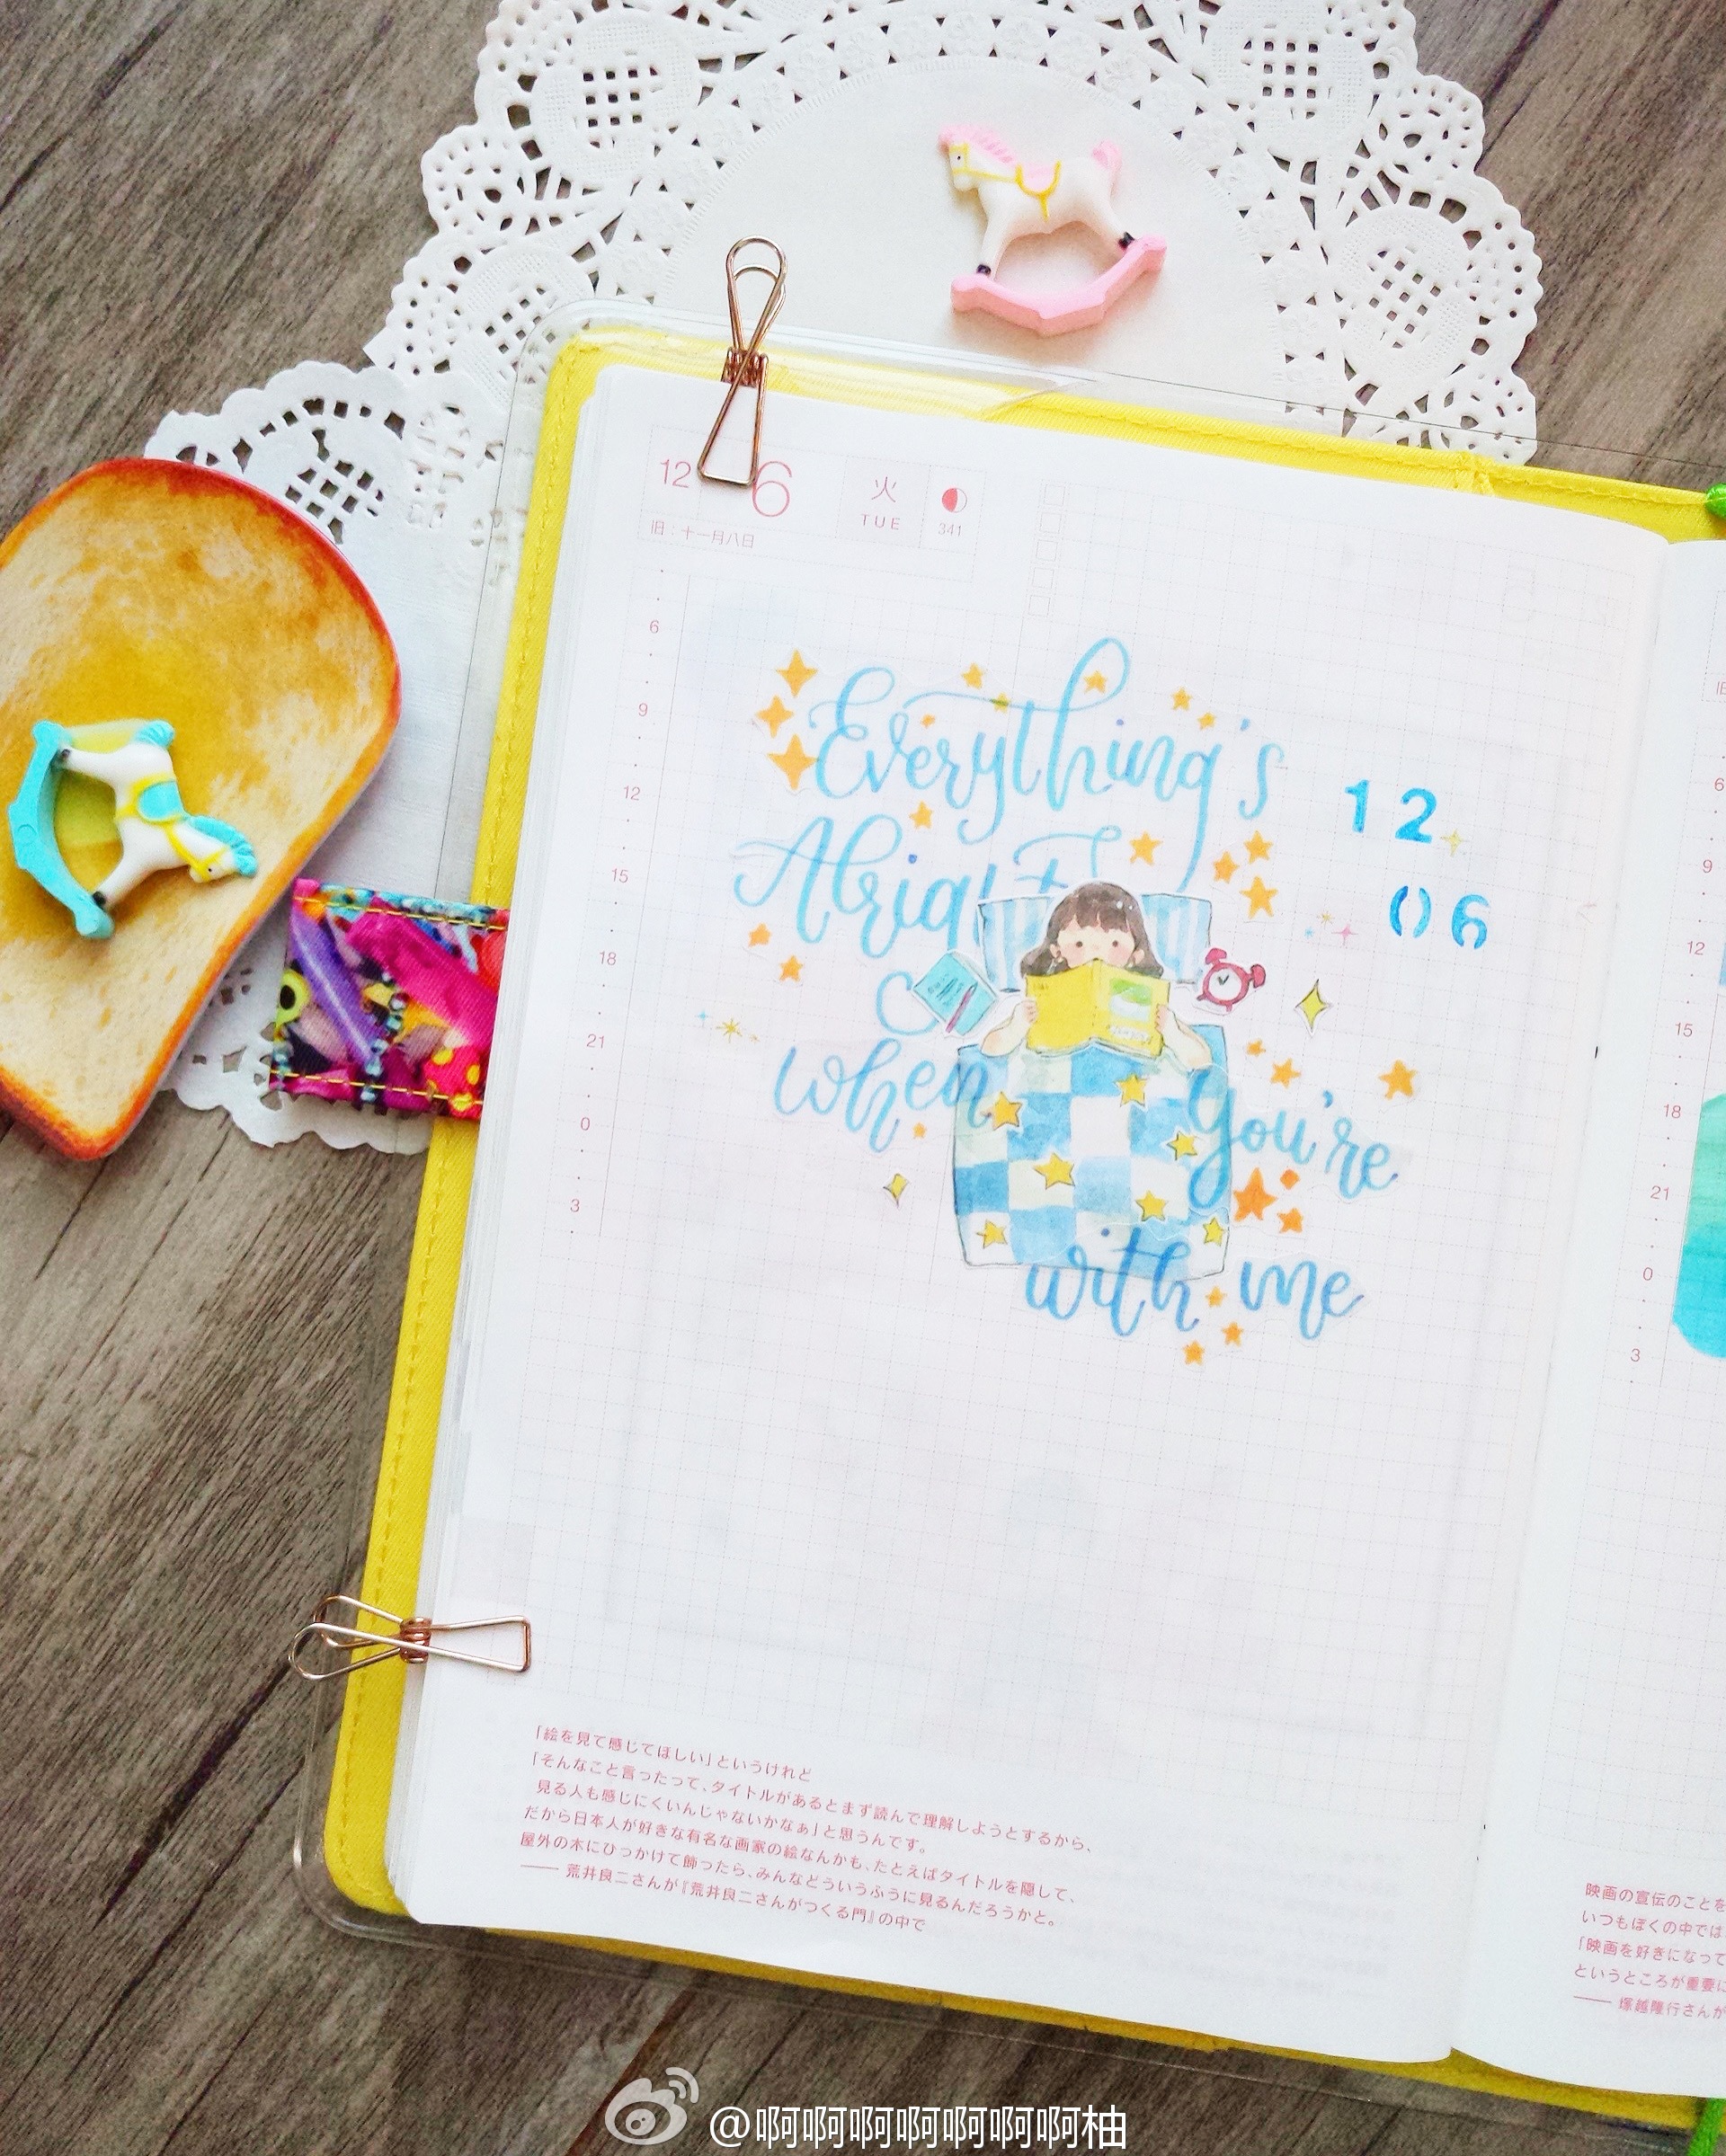 12 6
火
TUE
341
旧：十一月八日
6
9
12
15
18
21
0
3
Everything's
Alright
when you're
with me
12
06
「絵を見て感じてほしい」というけれど
「そんなこと言ったって、タイトルがあるとまず読んで理解しようとするから、
見る人も感じにくいんじゃないかなぁ」と思うんです。
だから日本人が好きな有名な画家の絵なんかも、たとえばタイトルを隠して、
屋外の木にひっかけて飾ったら、みんなどういうふうに見るんだろうかと。
—— 荒井良二さんが『荒井良二さんがつくる門』の中で
旧
6
9
12
15
18
21
0
3
映画の宣伝のことを
いつもぼくの中では
「映画を好きになって
というところが重要に
—— 塚越隆行さんが
@啊啊啊啊啊啊啊柚